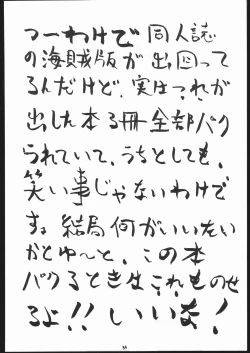 つーわけで同人誌
の海賊版が出回って
るんだけど、実はこれが
出した本3冊全部パク
られていて、うちとしても、
笑い事じゃないわけで
すよ。結局何がいいたい
かとゆーと、この本
パクるときはこれものせ
るよ!!いいな!